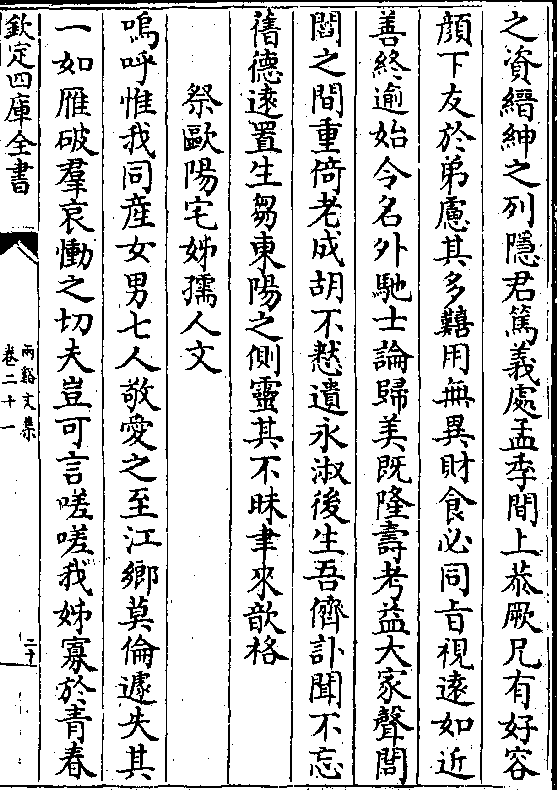 之資縉紳之列隱君篤義處孟季間上恭厥兄有好容
顔下友於弟慮其多囏用無異財食必同旨視遠如近
善終逾始令名外馳士論歸美既隆壽考益大家聲閭
閻之間重倚老成胡不憖遺永淑後生吾儕訃聞不忘
舊德逺置生芻東陽之側靈其不昧聿來歆格
祭歐陽宅姊孺人文
嗚呼惟我同産女男七人敬愛之至江鄉莫倫遽失其
一如雁破羣哀慟之切夫豈可言嗟嗟我姊寡於青春
欽定四庫全書
兩谿文集
卷二十一
二十